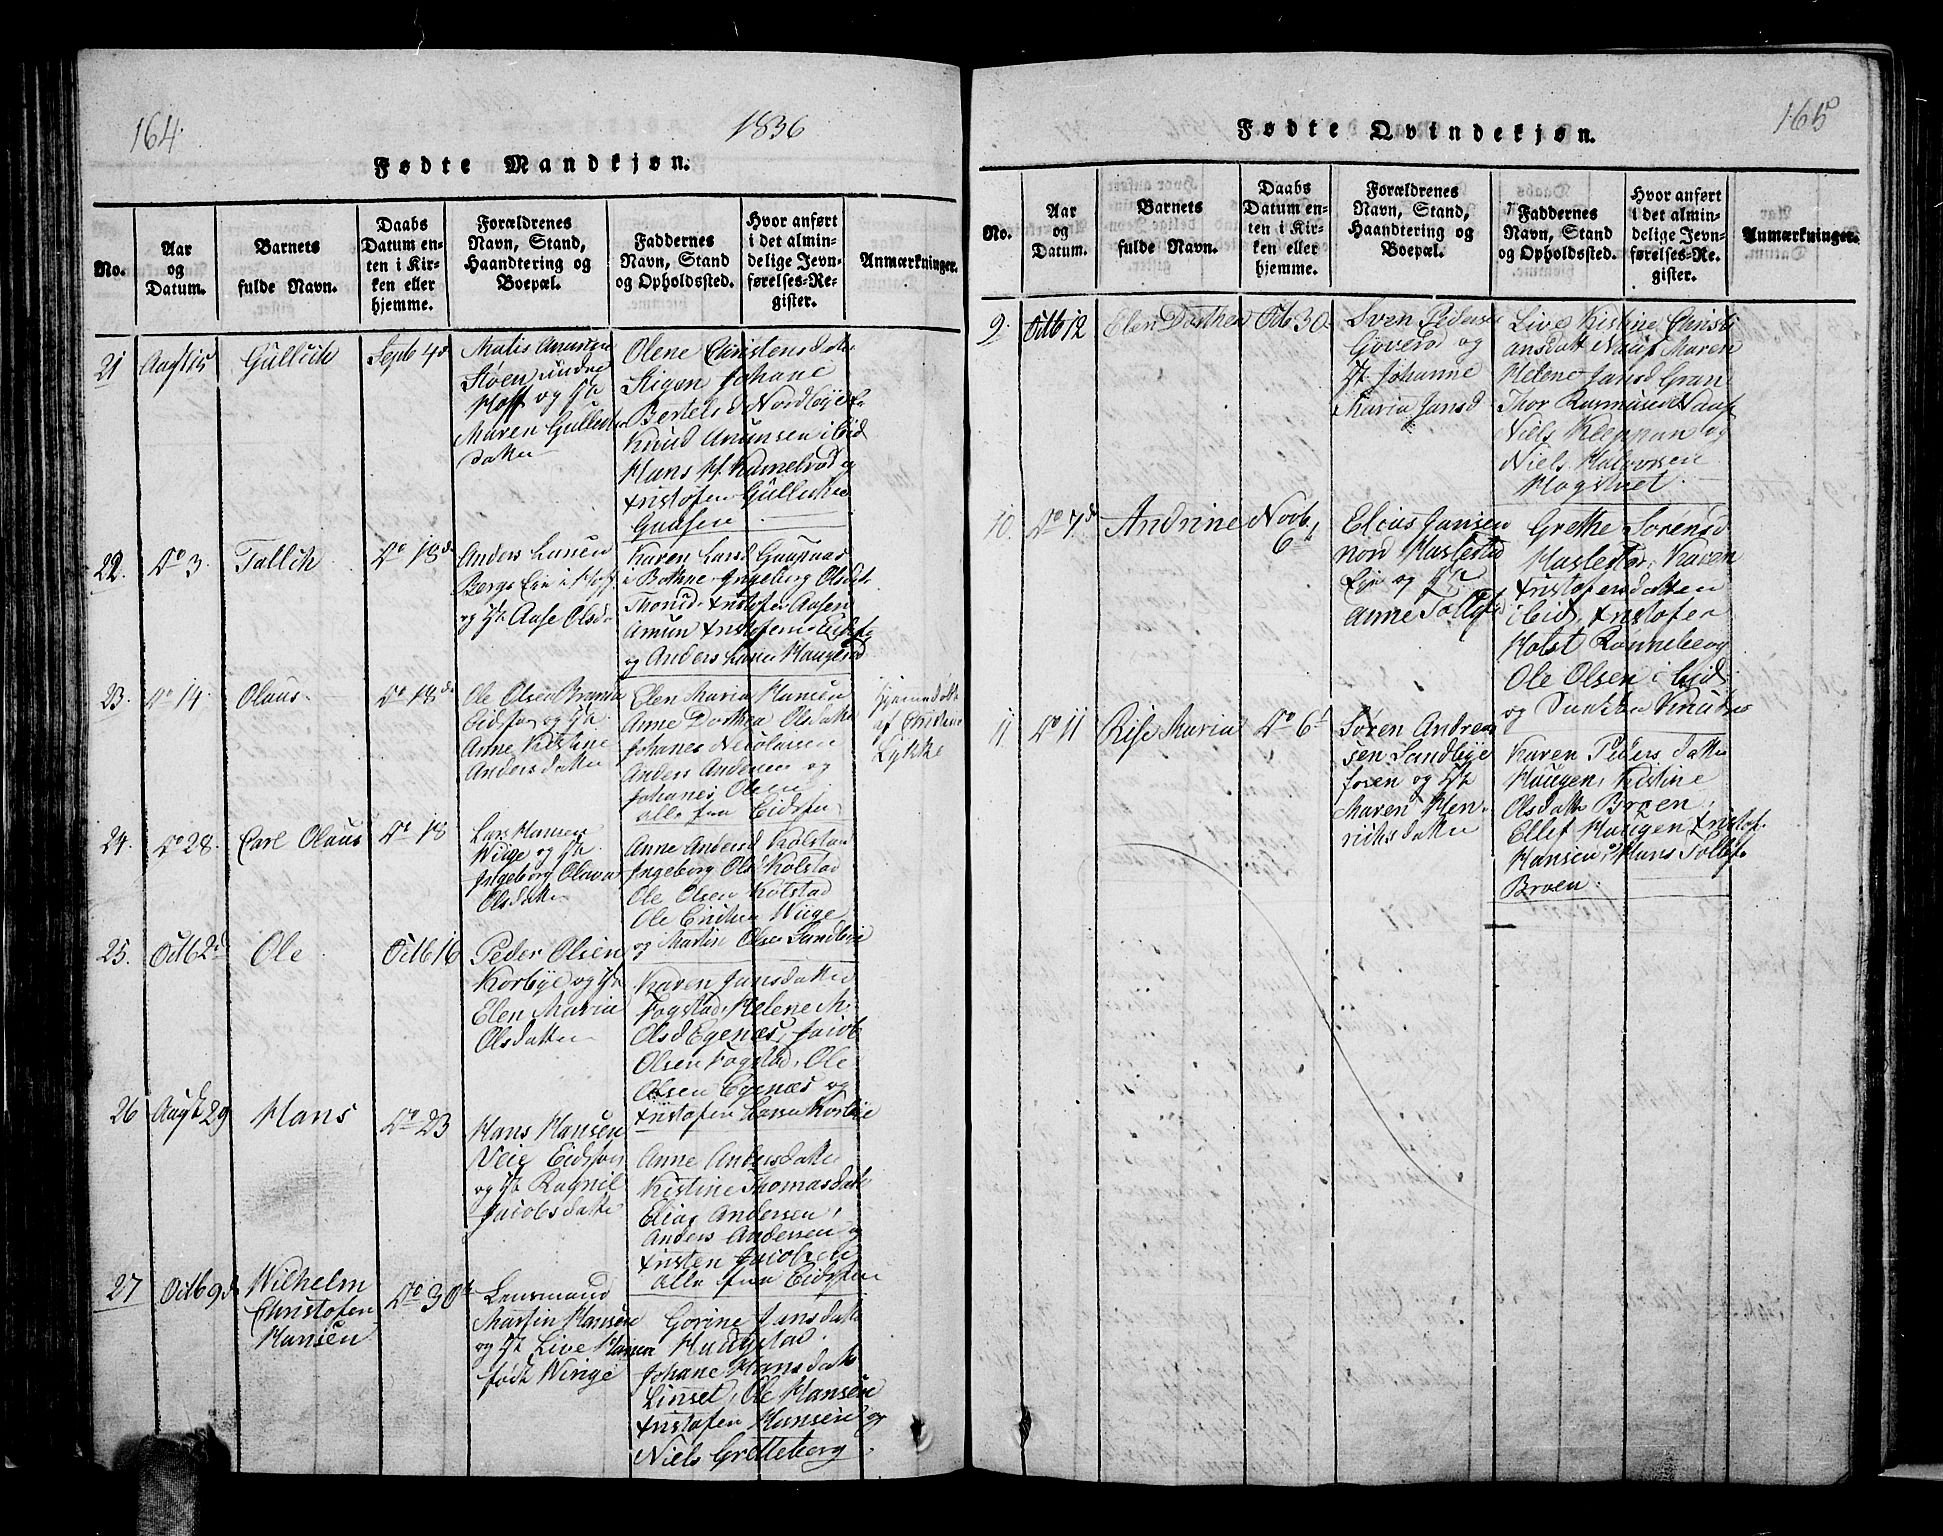 164.
1836
Fødte Mandkjøn.
No.
Aar
og
Datum.
Barnets
fulde Navn.
Daabs
Datum en-
ten i Kir-
ken eller
hjemme.
Forældrenes
Navn, Stand,
Haandtering og
Boepæl.
Faddernes
Navn, Stand
og Opholdssted.
Hvor anført
i det almin-
delige Jevn-
førelses-Re-
gister.
Anmærkninger.
21
Augt 15
Gullich
Septb 4d
Støen undre
Hoff og Hr
Maren Gullest
datter
Olene Christensdatter
Stigen Johane
Bertelsd Nordbye
Knud Amunsen i Eid
Hans H. Kamelrød og
Xristofer Gullechsen
22.
Do 3.
Tallich
Do 18d
Anders Larsen
Berge Eie i Hoff
og Hr Aase Olsd
Karen Larsd
i Bothne Ingeborg Olsdtr
Xristofer Aasen
Amun Xristofersen
og Anders Larsen Haugerud
23.
Do 14.
Olaus.
Do 18d
Ole Olsen
Eidsfos og Hr
Anne Kistine
Andersdatter
Elen Maria Hansen
Anne Dorthea Olsdatter
Johanes Nicolaisen
Anders Andersen og
Johanes Olsen
alle fra Eidsfos
Hjemmedøbt
af
Lykke
24.
Do 28.
Carl Olaus
Do 18
Lars Hansen
Wiige og Hr
Ingeborg Olava
Olsdatter
Anne Andersd Kolstad
Ingeborg Olsd Kolstad
Ole Olsen Kolstad
Ole Erichsen Wiige
og Martin Olsen Sandbye
25.
Octb 2d
Ole
Octb 16
Peder Olsen
Korbye og Hr
Elen Maria
Olsdatter
Karen Jansdatter
Fogstad, Helene M.
Olsd Egenæs, Jacob
Olsen Fogstad, Ole
Olsen Egenæs og
Xristofer Larsen Korbye
26
Augt 29
Hans
Do 23
Hans Hansen
Veie Eidsfos
og Hr Ragnil
Jacobsdatter
Anne Andersdatter
Kistine Thomasdatter
Elias Andersen,
Anders Andersen og
Xristen Jacobsen
alle fra Eidsfos
27
Octb 9d
Wilhelm
Christofer
Hansen
Do 30te
Lensmand
Martin Hansen
og Hr Live Hansen
født Wiige
Gorine Jansdatter
Haugstad.
Johane Hansdatter
Linset, Ole Hansen
Xristofer Hansen og
Niels Gretteberg
165
Fødte Qvindekjøn.
No.
Aar
og
Datum.
Barnets
fulde Navn.
Daabs
Datum en-
ten i Kir-
ken eller
hjemme.
Forældrenes
Navn, Stand,
Haandtering og
Boepæl.
Faddernes
Navn, Stand
og Opholdssted.
Hvor anført
i det almin-
delige Jevn-
førelses-Re-
gister.
Anmærkninger.
9.
Octb 12
Elen Dorthea
Octb 30
Sven Pedersen
Goverød og
Hr Johanne
Maria Jansd
Live Kistine Christi
ansdatter Maren
Helene Jansd Gran
Thor Rasmusen
Niels Kleppan og
Niels Halvorsen
Hogstvet
10.
Do 7d
Andrine
Novb
6te
Elias Jansen
nord Haslestad
Eje og Hr
Anne Tollefsd
Grethe Sørensd
Haslestad, Karen
Xristofersdatter
i Eid, Xristofer
Holst Rønneberg
Ole Olsen i Eid
og Knudsen
11
Do 11
Rise Maria
Do 6d
Søren Andrea
sen Sandbye
fosen og Hr
Maren Hen-
richsdatter
Karen Pedersdatter
Haugen, Kistine
Olsdatter Broen,
Ellef Haugen Xristof.
Hansen, Hans Tollefs.
Broen.